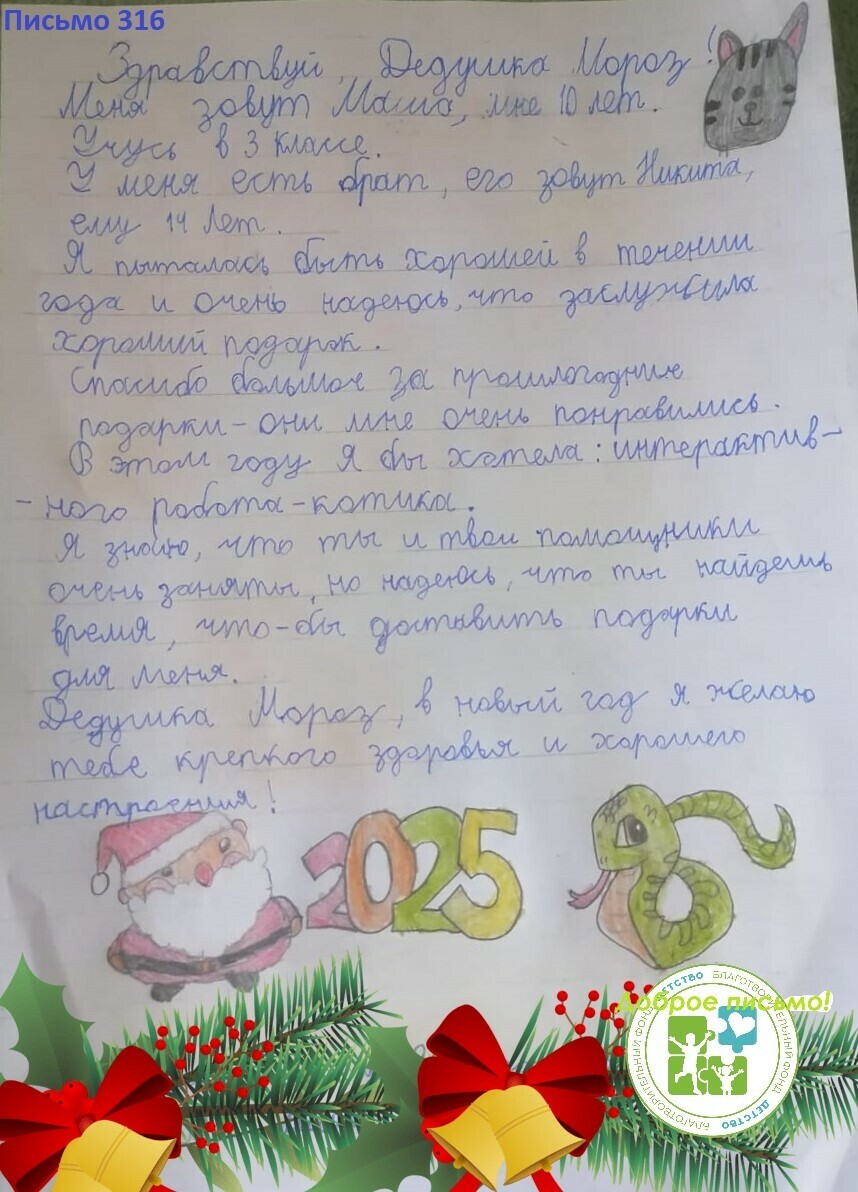 Письмо 316
Здравствуй, Дедушка Мороз!
Меня зовут Маша, мне 10 лет.
Учусь в 3 классе.
У меня есть брат, его зовут Никита,
ему 14 лет.
Я пыталась быть хорошей в течении
года и очень надеюсь, что заслужила
хороший подарок.
Спасибо большое за прошлогодние
подарки - они мне очень понравились.
В этом году я бы хотела: интерактив-
-ного робота-котика.
Я знаю, что ты и твои помощники
очень заняты, но надеюсь, что ты найдешь
время, что-бы доставить подарки
для меня.
Дедушка Мороз, в новый год я желаю
тебе крепкого здоровья и хорошего
настроения!
2025
Доброе письмо!
БЛАГОТВОРИТЕЛЬНЫЙ ФОНД ДЕТСТВО БЛАГОТВОРИТЕЛЬНЫЙ ФОНД ДЕТСТВО